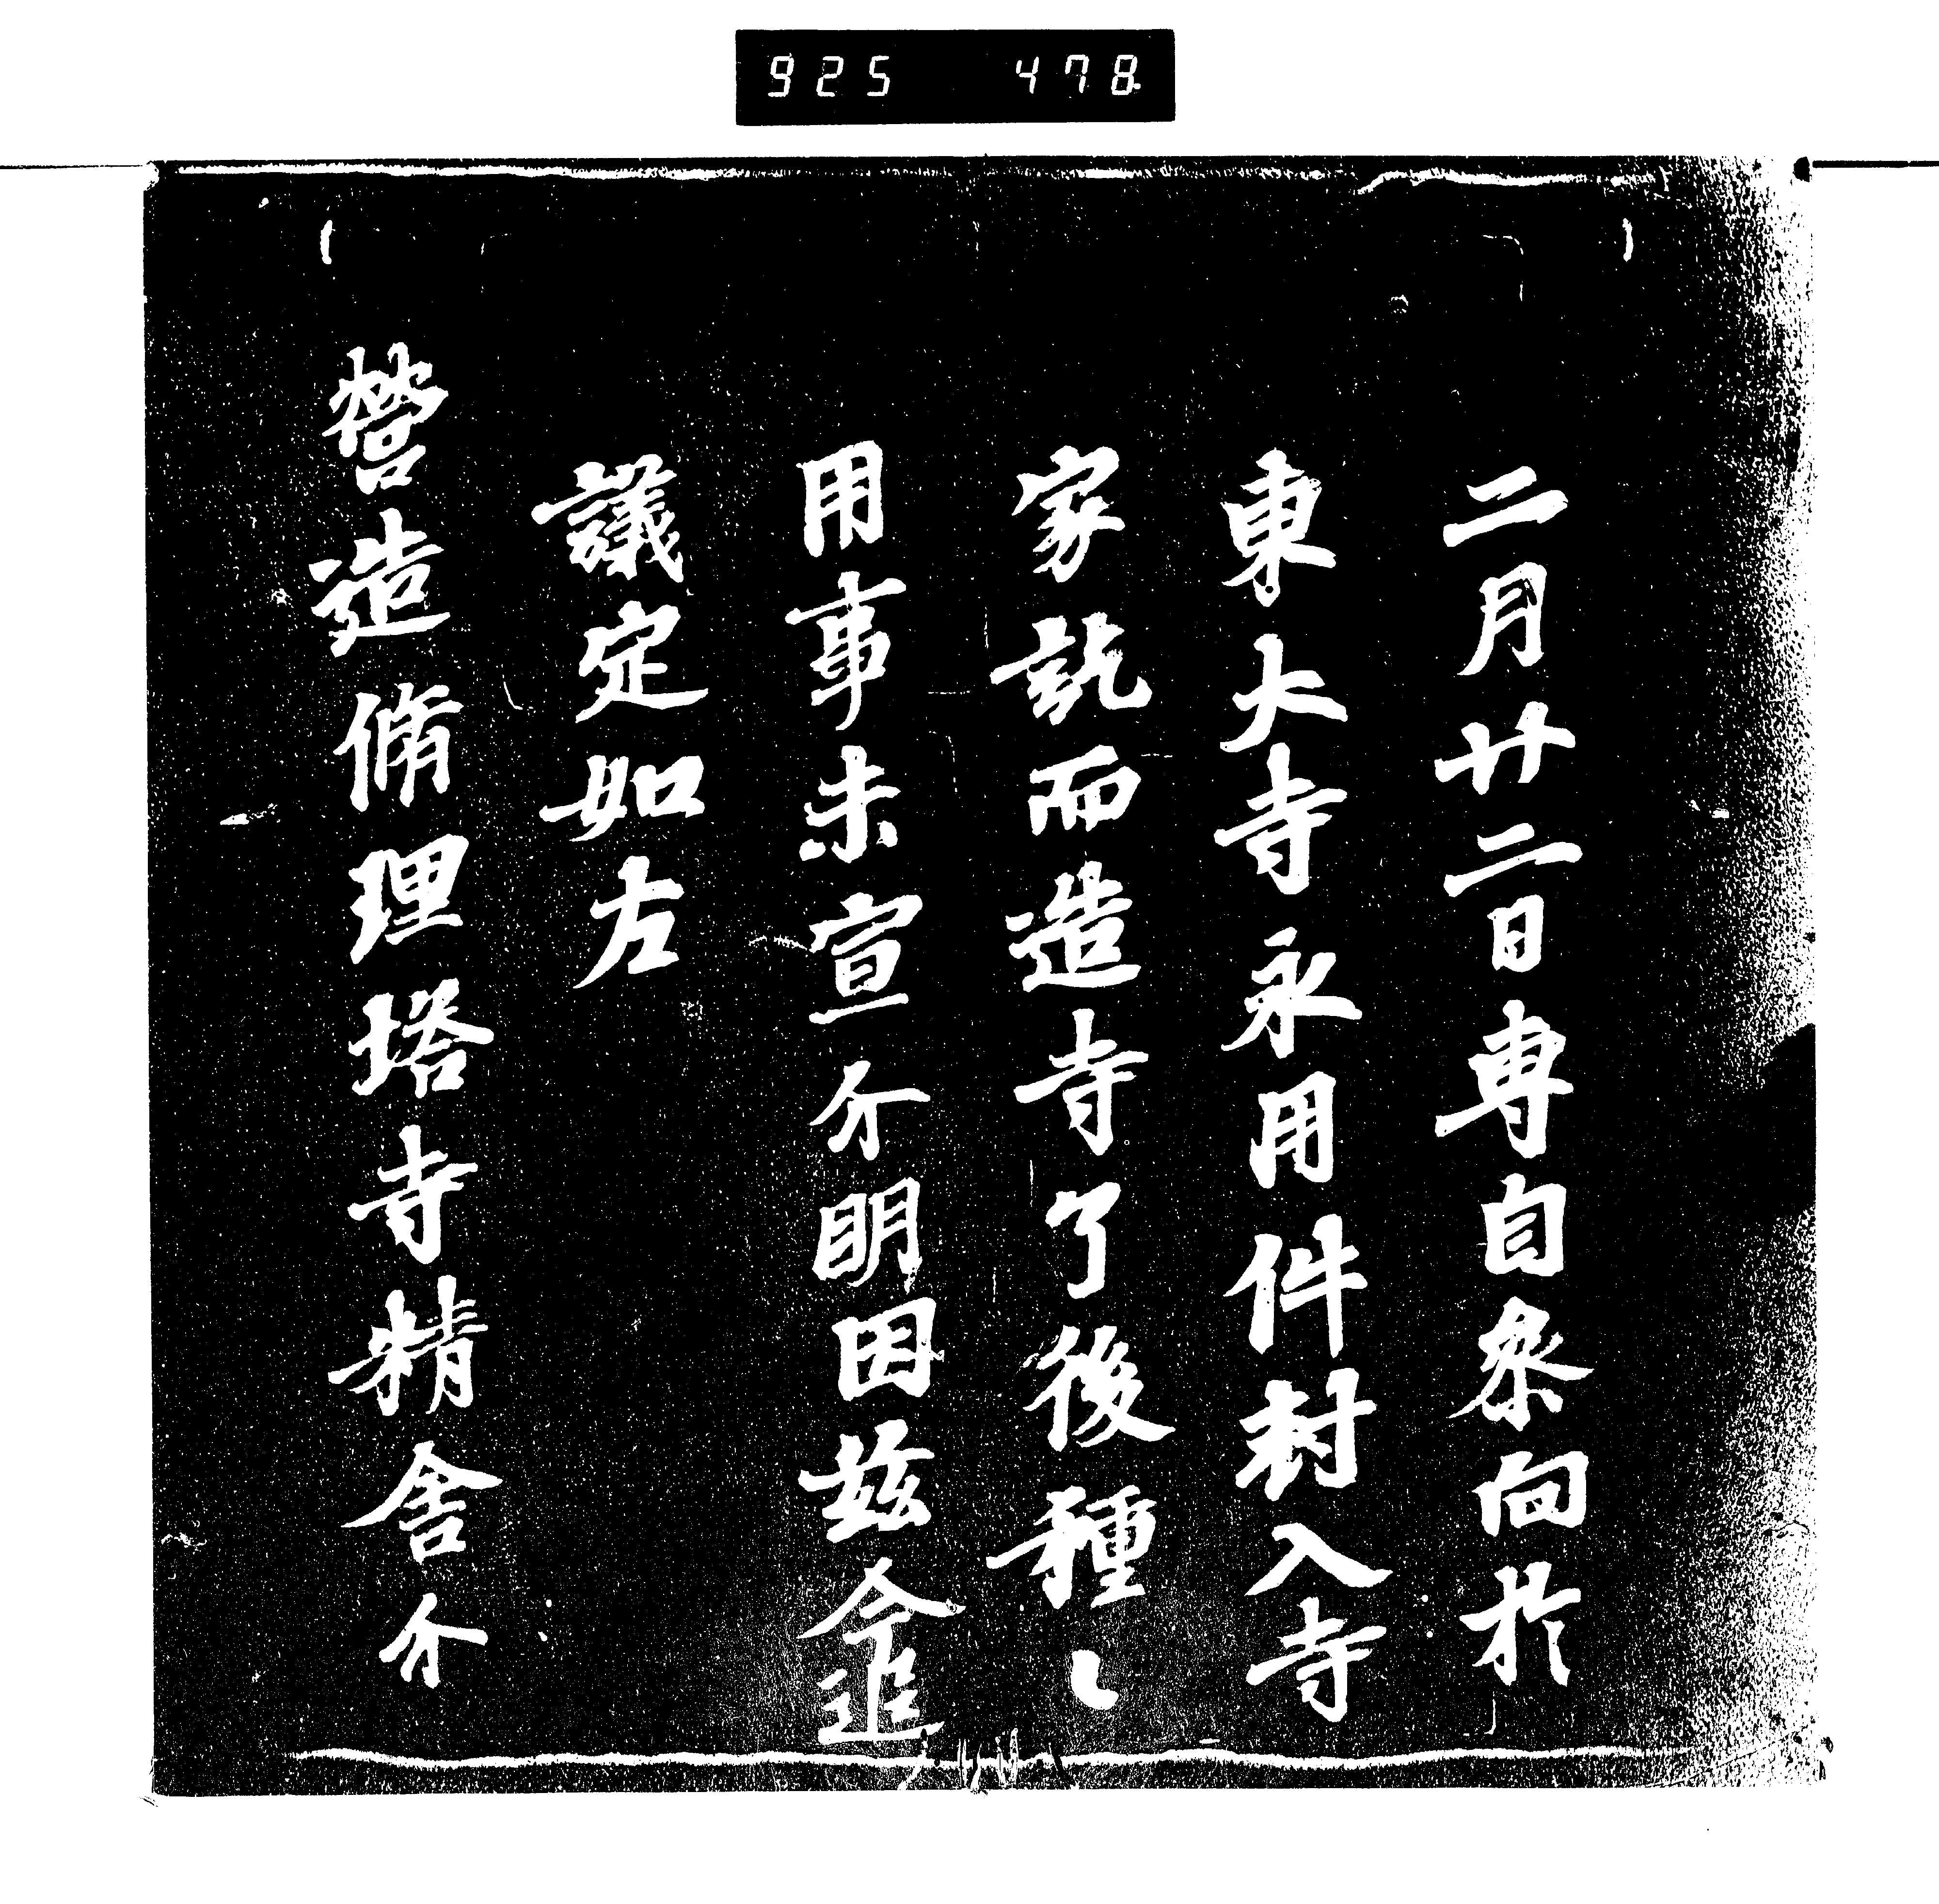 925 478
二月廿二日專自參向於
東大寺永用件封入寺
家訖而造寺了後種〻
用事未宣分明因茲今追
議定如左
營造脩理塔寺精舍分